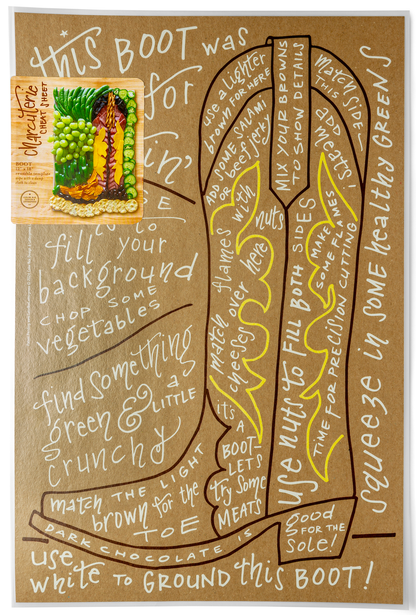 this BOOT was
for
in'
Charcuterie
CHEAT SHEET
BOOT
E
to
fill your
background
CHOP SOME
vegetables
find something
green & a LITTLE
crunchy
use a lighter
brown FOR HERE
ADD SOME SALAMI
OR beef jerky
MIX YOUR BROWNS
TO SHOW DETAILS
match SIDE—
THIS
ADD
meats!
match flames with nuts
cheeses over here
USE NUTS TO FILL BOTH SIDES
MAKE
SOME FLAMES
TIME FOR PRECISION CUTTING
squeeze in SOME healthy GREENS
it's
A
BOOT—
LETS
try some
MEATS
match THE LIGHT
brown for the
TOE
DARK CHOCOLATE IS
good
FOR THE
Sole!
use
white TO GROUND this BOOT!